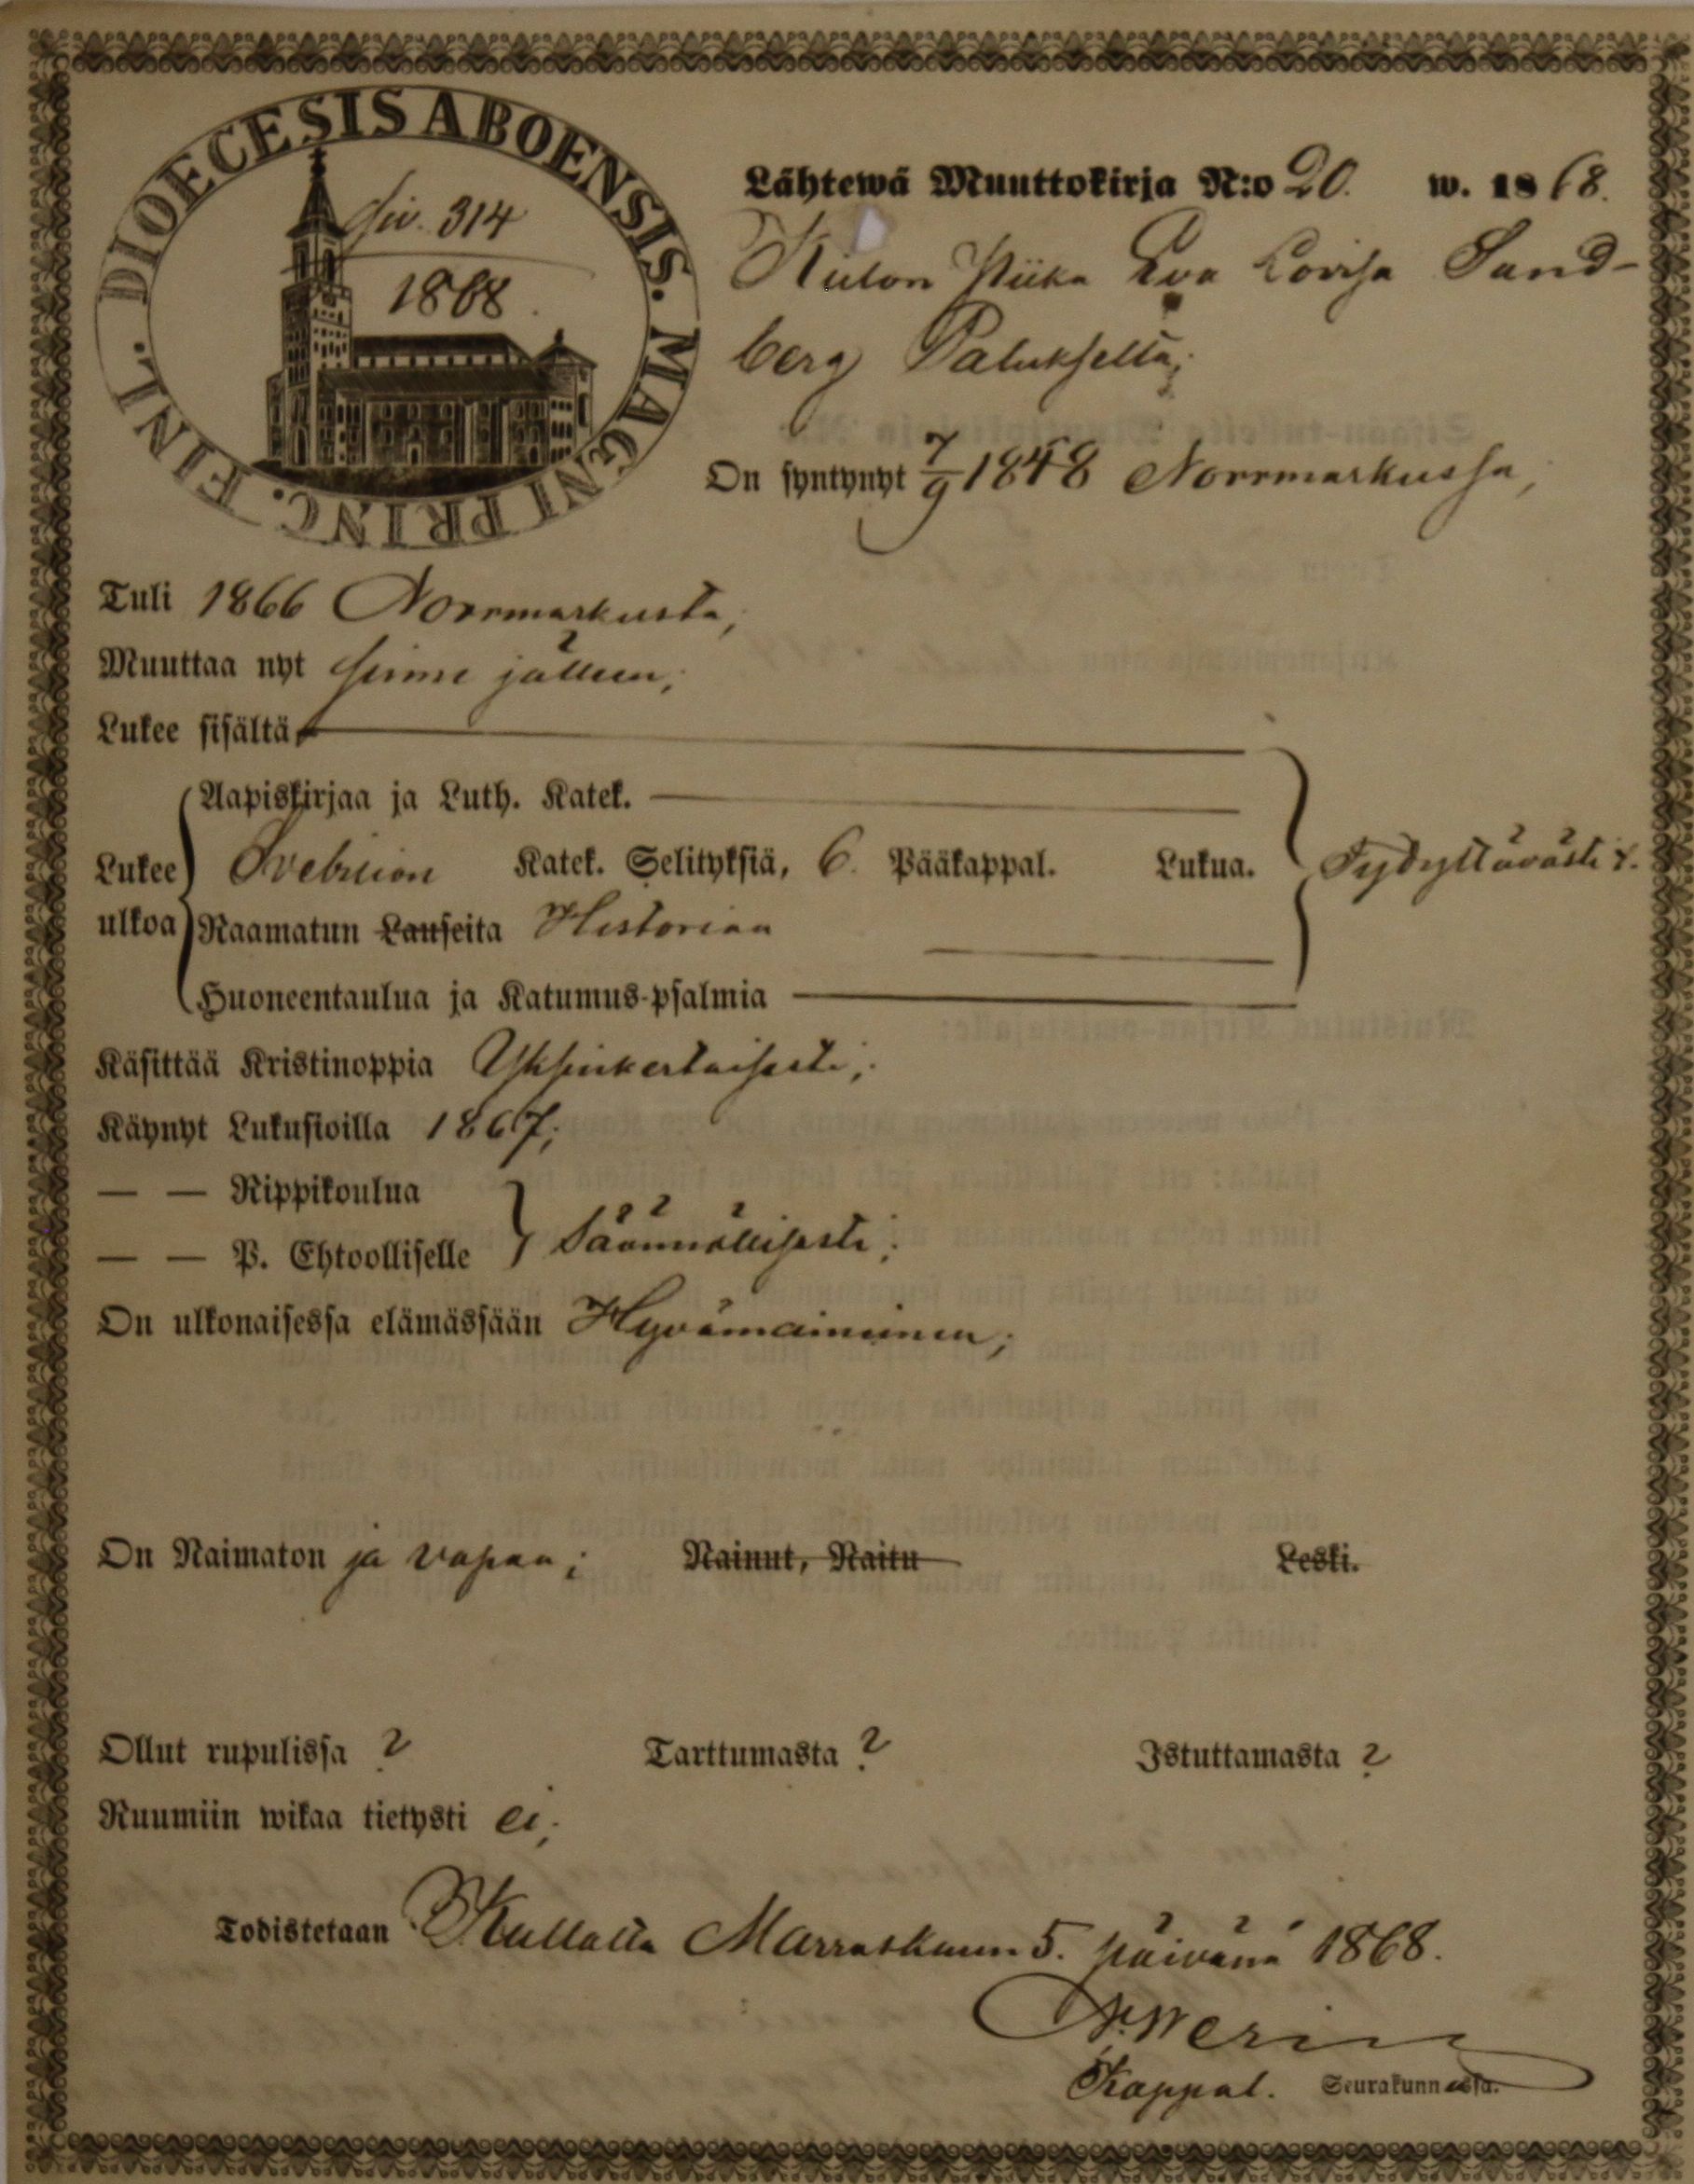 DIOECESIS ABOENSIS. MAGNI PRINC. FINL.
div. 314
1868.
Lähtewä Muuttokirja N:o 20. w. 1868.
Piika Eva Lovisa Sand-
berg Palukselta;
On syntynyt 7/9 1848 Norrmarkussa,
Tuli 1866 Norrmarkusta,
Muuttaa nyt sinne jälleen;
Lukee sisältä
Aapiskirjaa ja Luth. Katek.
Lukee ulkoa Svebilion Katek. Selityksiä, 6. Pääkappal. Lukua. Tydyttävästi
Raamatun Lauseita Historiaa
Huoneentaulua ja Katumus-psalmia
Käsittää Kristinoppia Yksinkertaisesti;
Käynyt Lukusioilla 1867;
— — Rippikoulua
— — P. Ehtoolliselle Säännöllisesti;
On ulkonaisessa elämässään Hyvämaineinen;
On Naimaton ja vapaa; Nainut, Naitu Leski.
Ollut rupulissa ? Tarttumasta ? Istuttamasta ?
Ruumiin wikaa tietysti ei;
Todistetaan Kullalla Marraskuun 5. päivänä 1868.
Kappal. Seurakunnassa.